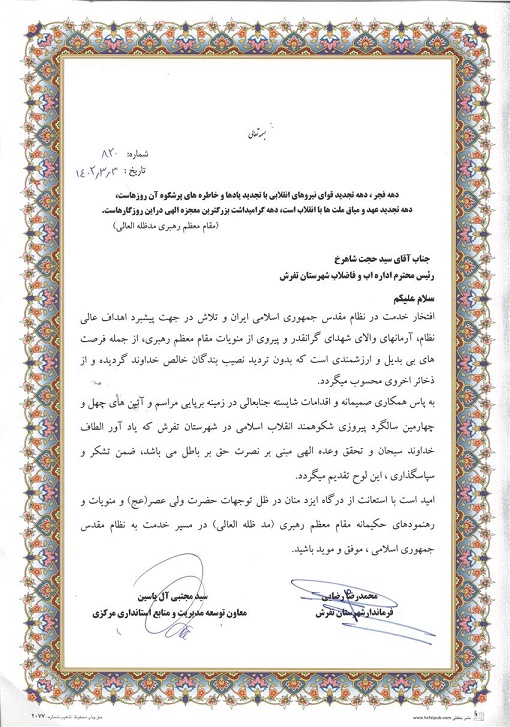 بسمه تعالی
شماره: ۸۲۰
تاریخ: ۱۴۰۲،۳،۳
دهه فجر ، دهه تجدید قوای نیروهای انقلابی با تجدید یادها و خاطره های پرشکوه آن روزهاست،
دهه تجدید عهد و میاق ملت ها با انقلاب است، دهه گرامیداشت بزرگترین معجزه الهی دراین روزگارهاست.
(مقام معظم رهبری مدظله العالی)
جناب آقای سید حجت شاهرخ
رئیس محترم اداره اب و فاضلاب شهرستان تفرش
سلام علیکم
افتخار خدمت در نظام مقدس جمهوری اسلامی ایران و تلاش در جهت پیشبرد اهداف عالی
نظام، آرمانهای والای شهدای گرانقدر و پیروی از منویات مقام معظم رهبری، از جمله فرصت
های بی بدیل و ارزشمندی است که بدون تردید نصیب بندگان خالص خداوند گردیده و از
ذخائر اخروی محسوب میگردد.
به پاس همکاری صمیمانه و اقدامات شایسته جنابعالی در زمینه برپایی مراسم و آیین های چهل و
چهارمین سالگرد پیروزی شکوهمند انقلاب اسلامی در شهرستان تفرش که یاد آور الطاف
خداوند سبحان و تحقق وعده الهی مبنی بر نصرت حق بر باطل می باشد، ضمن تشکر و
سپاسگذاری ، این لوح تقدیم میگردد.
امید است با استعانت از درگاه ایزد منان در ظل توجهات حضرت ولی عصر(عج) و منویات و
رهنمودهای حکیمانه مقام معظم رهبری (مد ظله العالی) در مسیر خدمت به نظام مقدس
جمهوری اسلامی ، موفق و موید باشید.
محمدرضا رضایی
فرماندارشهرستان تفرش
سید مجتبی آل یاسین
معاون توسعه مدیریت و منابع استانداری مرکزی
www.hafezipub.com
حق چاپ محفوظ. تذهیب شماره: ۲۰۷۷